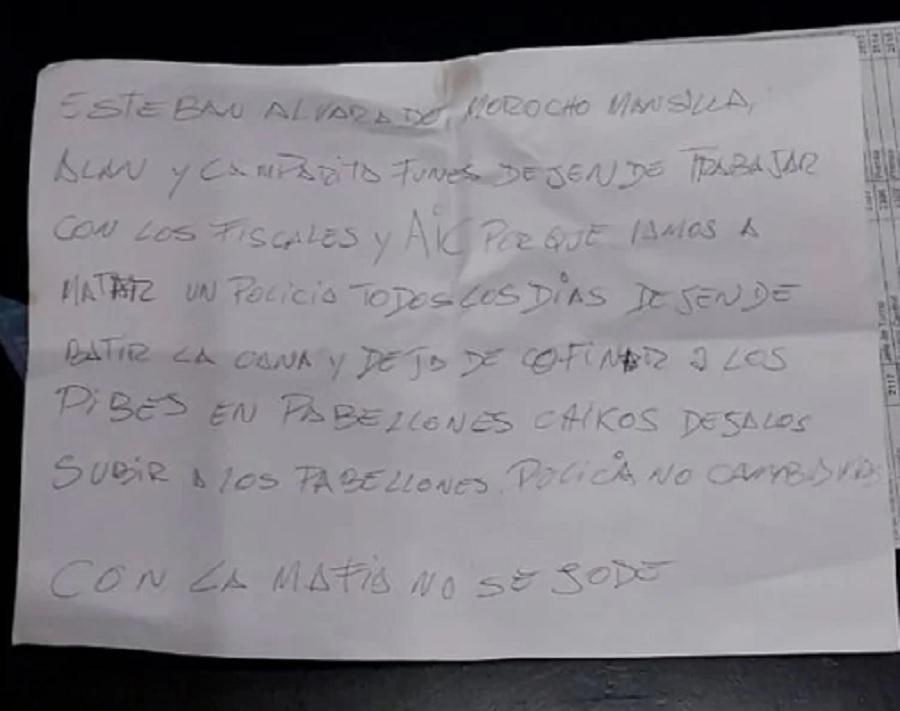 ESTEBAN ALVARADO, MOROCHO MANSILLA,
ALAN y CAMPERITO FUNES DEJEN DE TRABAJAR
CON LOS FISCALES y AIC PORQUE IAMOS A
MATAR UN POLICIA TODOS LOS DIAS DEJEN DE
BATIR LA CANA y DEJA DE COFINAR A LOS
PIBES EN PABELLONES CHIKOS DEJALOS
SUBIR A LOS PABELLONES. POLICIA NO
CON LA MAFIA NO SE JODE
2117